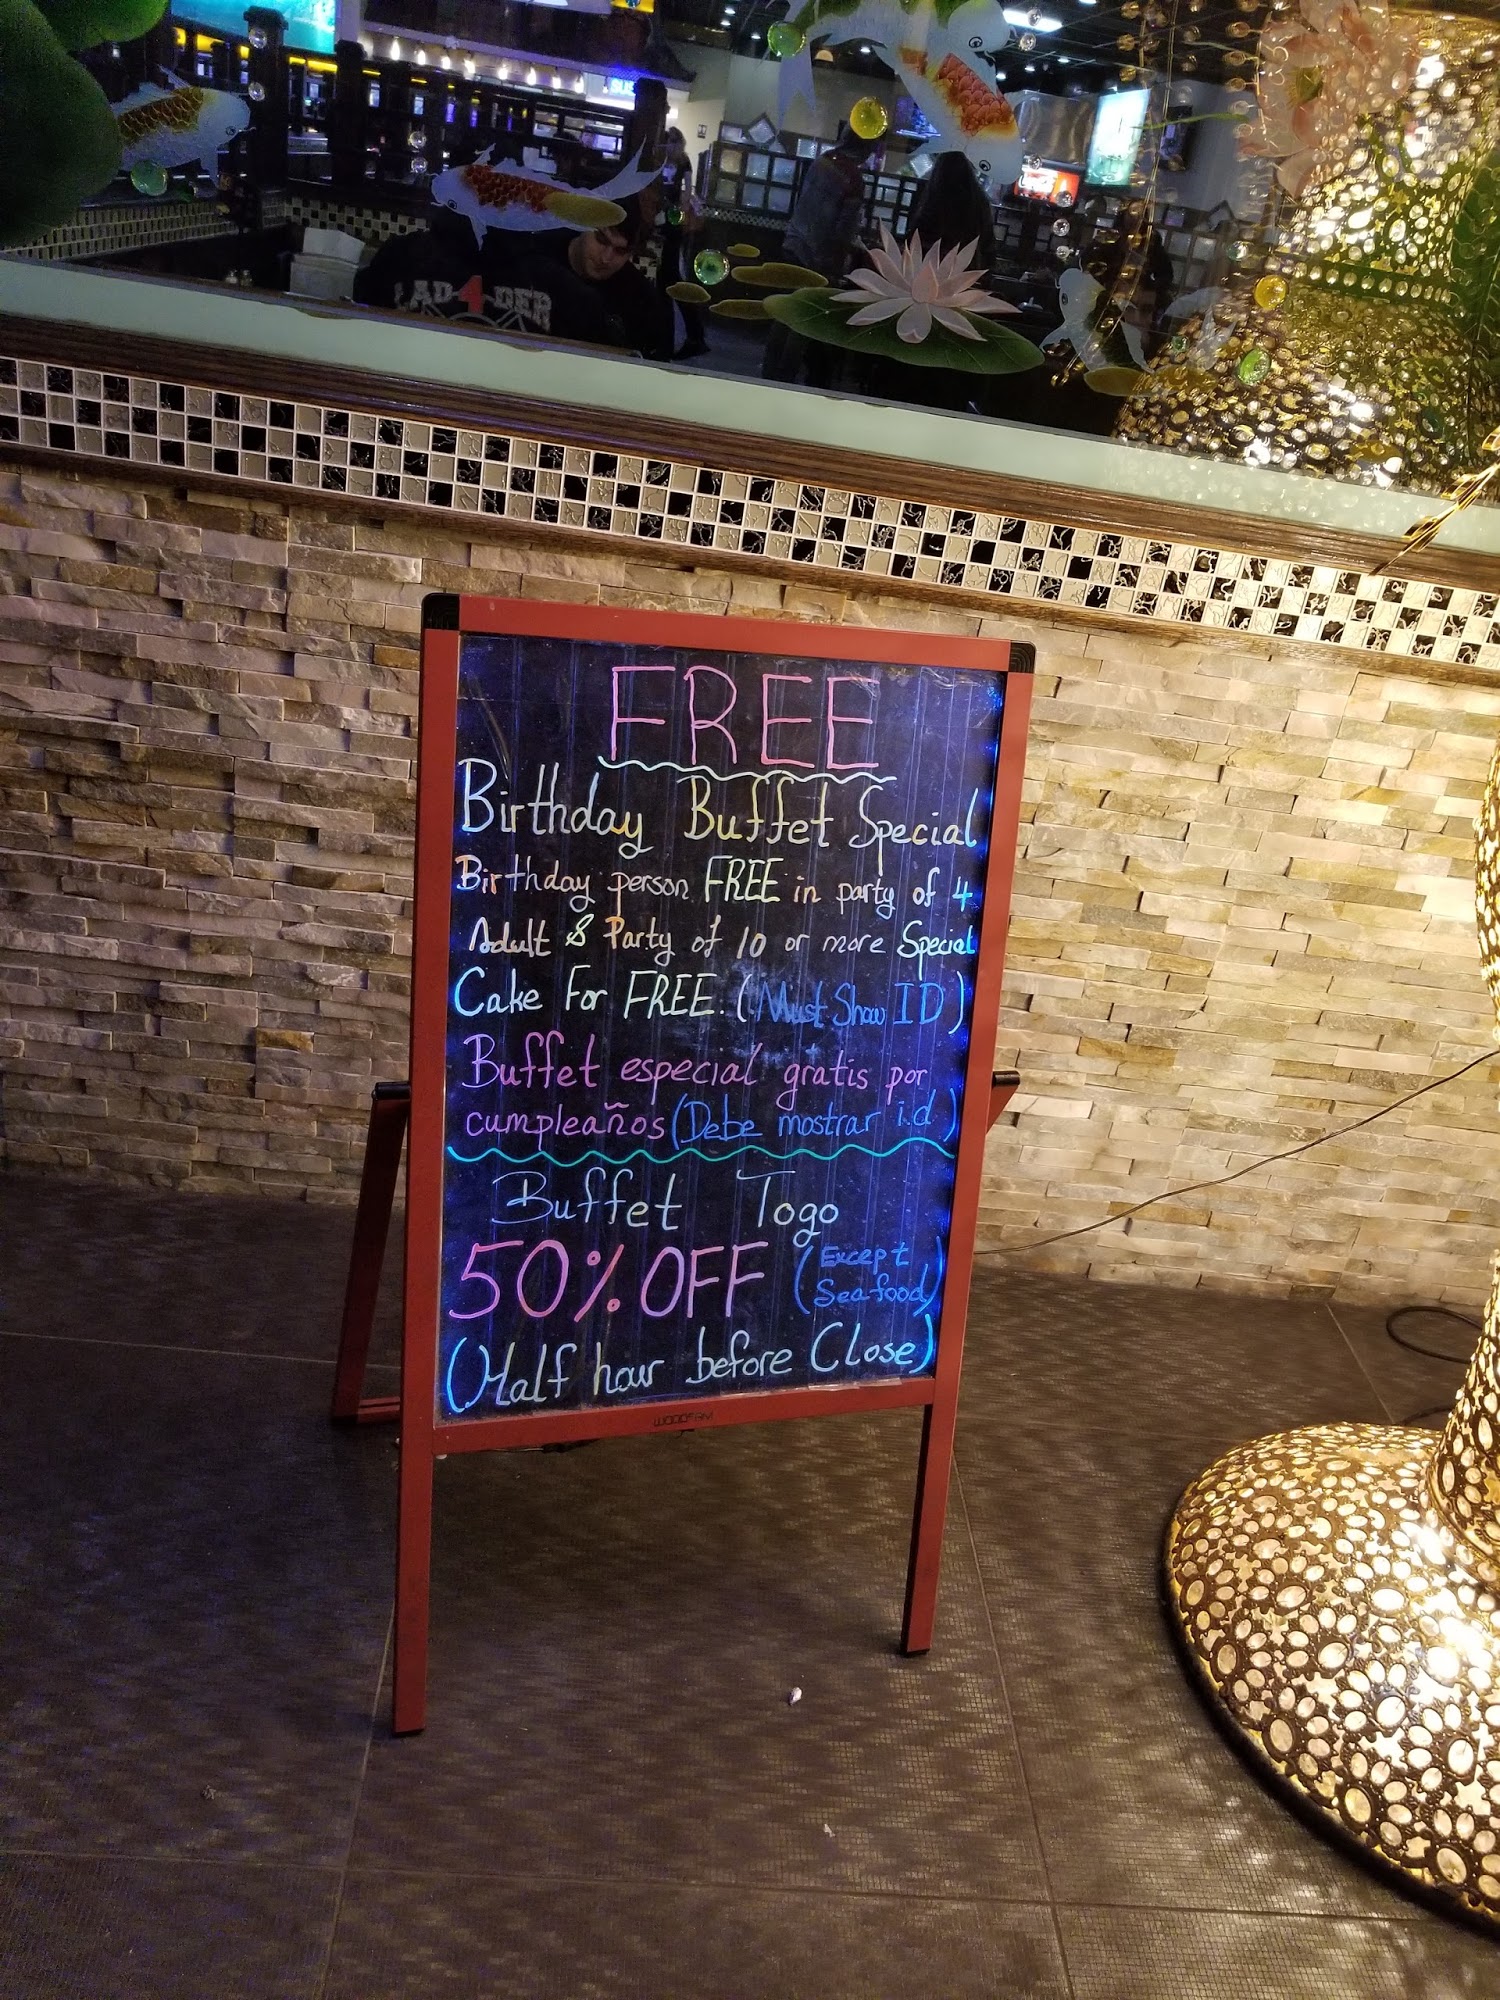 LAD4DER
FREE
Birthday Buffet Special
Birthday person FREE in party of 4
Adult & Party of 10 or more Special
Cake For FREE. (Must Show ID)
Buffet especial gratis por
cumpleaños (Debe mostrar i.d.)
Buffet Togo
50% OFF (Except
Seafood)
(Half hour before Close)